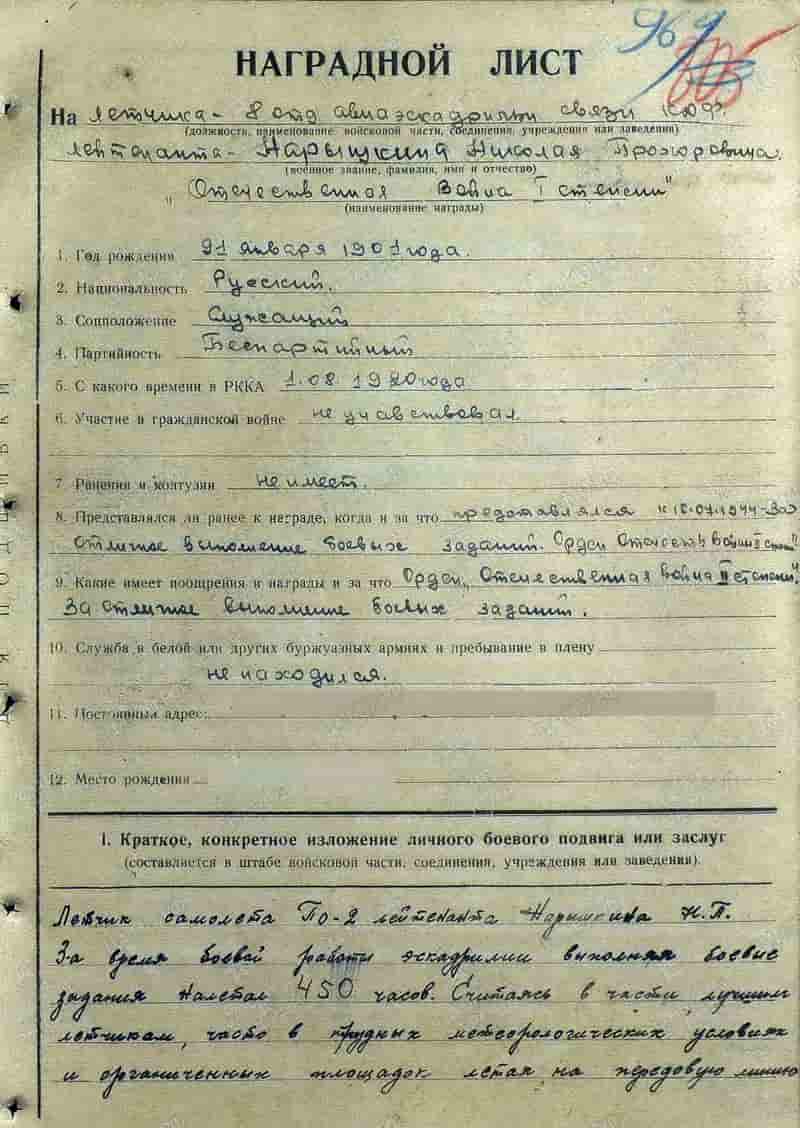 НАГРАДНОЙ ЛИСТ
На Летчика - 8 отд авиаэскадрильи связи
(должность, наименование войсковой части, соединения, учреждения или заведения)
лейтенанта - Нарышкина Николая Прохоровича.
(военное звание, фамилия, имя и отчество)
"Отечественная Война I степени"
(наименование награды)
1. Год рождения 21 января 1901 года.
2. Национальность Русский.
3. Соцположение Служащий
4. Партийность Беспартийный
5. С какого времени в РККА 1.08.1920 года
6. Участие в гражданской войне не участвовал.
7 Ранения и контузии не имеет.
8. Представлялся ли ранее к награде, когда и за что представлялся За
отличное выполнение боевых заданий. Орден Отечеств Войны II степ
9. Какие имеет поощрения и награды и за что Орден „Отечественная Война II степени".
За отличное выполнение боевых заданий.
10. Служба в белой или других буржуазных армиях и пребывание в плену
не находился.
11. Постоянный адрес:
12. Место рождения
I. Краткое, конкретное изложение личного боевого подвига или заслуг
(составляется в штабе войсковой части, соединения, учреждения или заведения).
Летчик самолета По-2 лейтенанта Нарышкина Н.П.
За время боевой работы эскадрилии выполняя боевые
задания налетал 450 часов. Считаясь в части лучшим
летчикам, часто в трудных метеорологических условиях
и ограниченных площадок летая на передовую линию